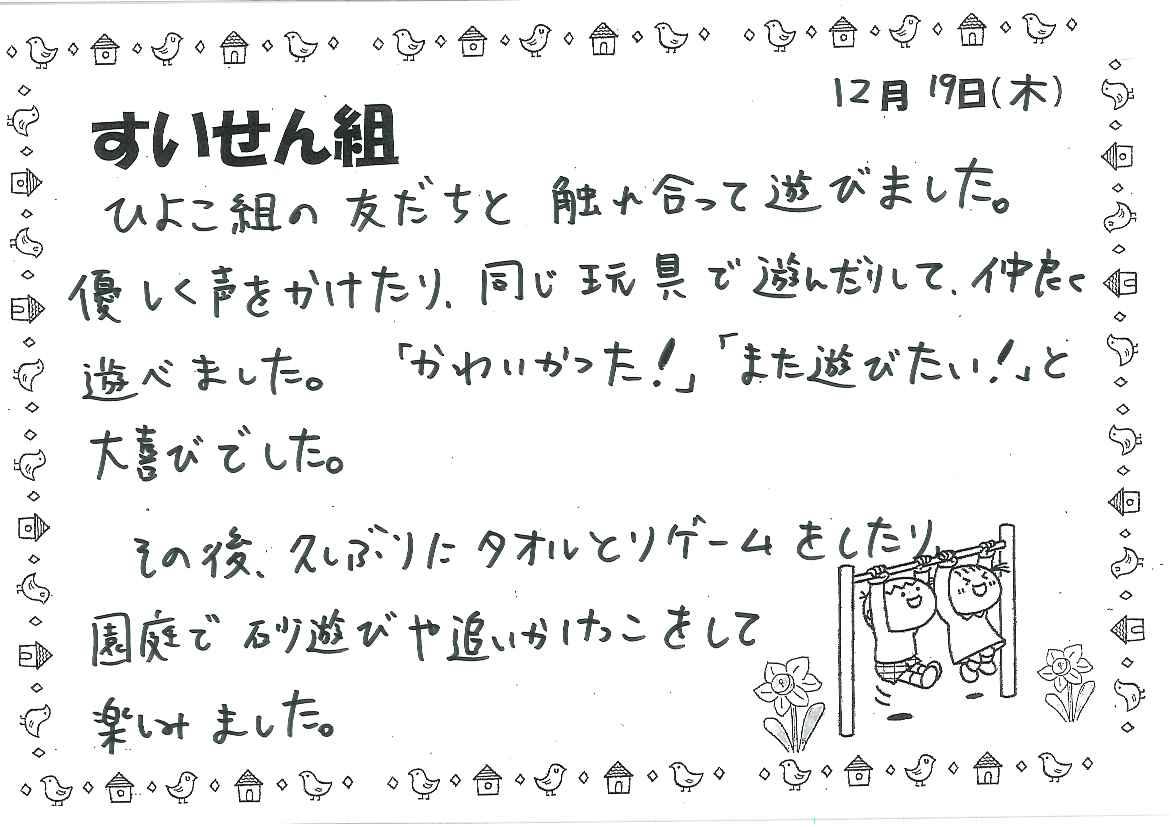 12月 19日(木)
すいせん組
ひよこ組の 友だちと 触れ合って 遊びました。
優しく声をかけたり、同じ玩具で遊んだりして、仲良く
遊べました。 「かわいかった!」「また遊びたい!」と
大喜びでした。
その後、久しぶりにタオルとりゲームをしたり、
園庭で砂遊びや追いかけっこをして
楽しみました。